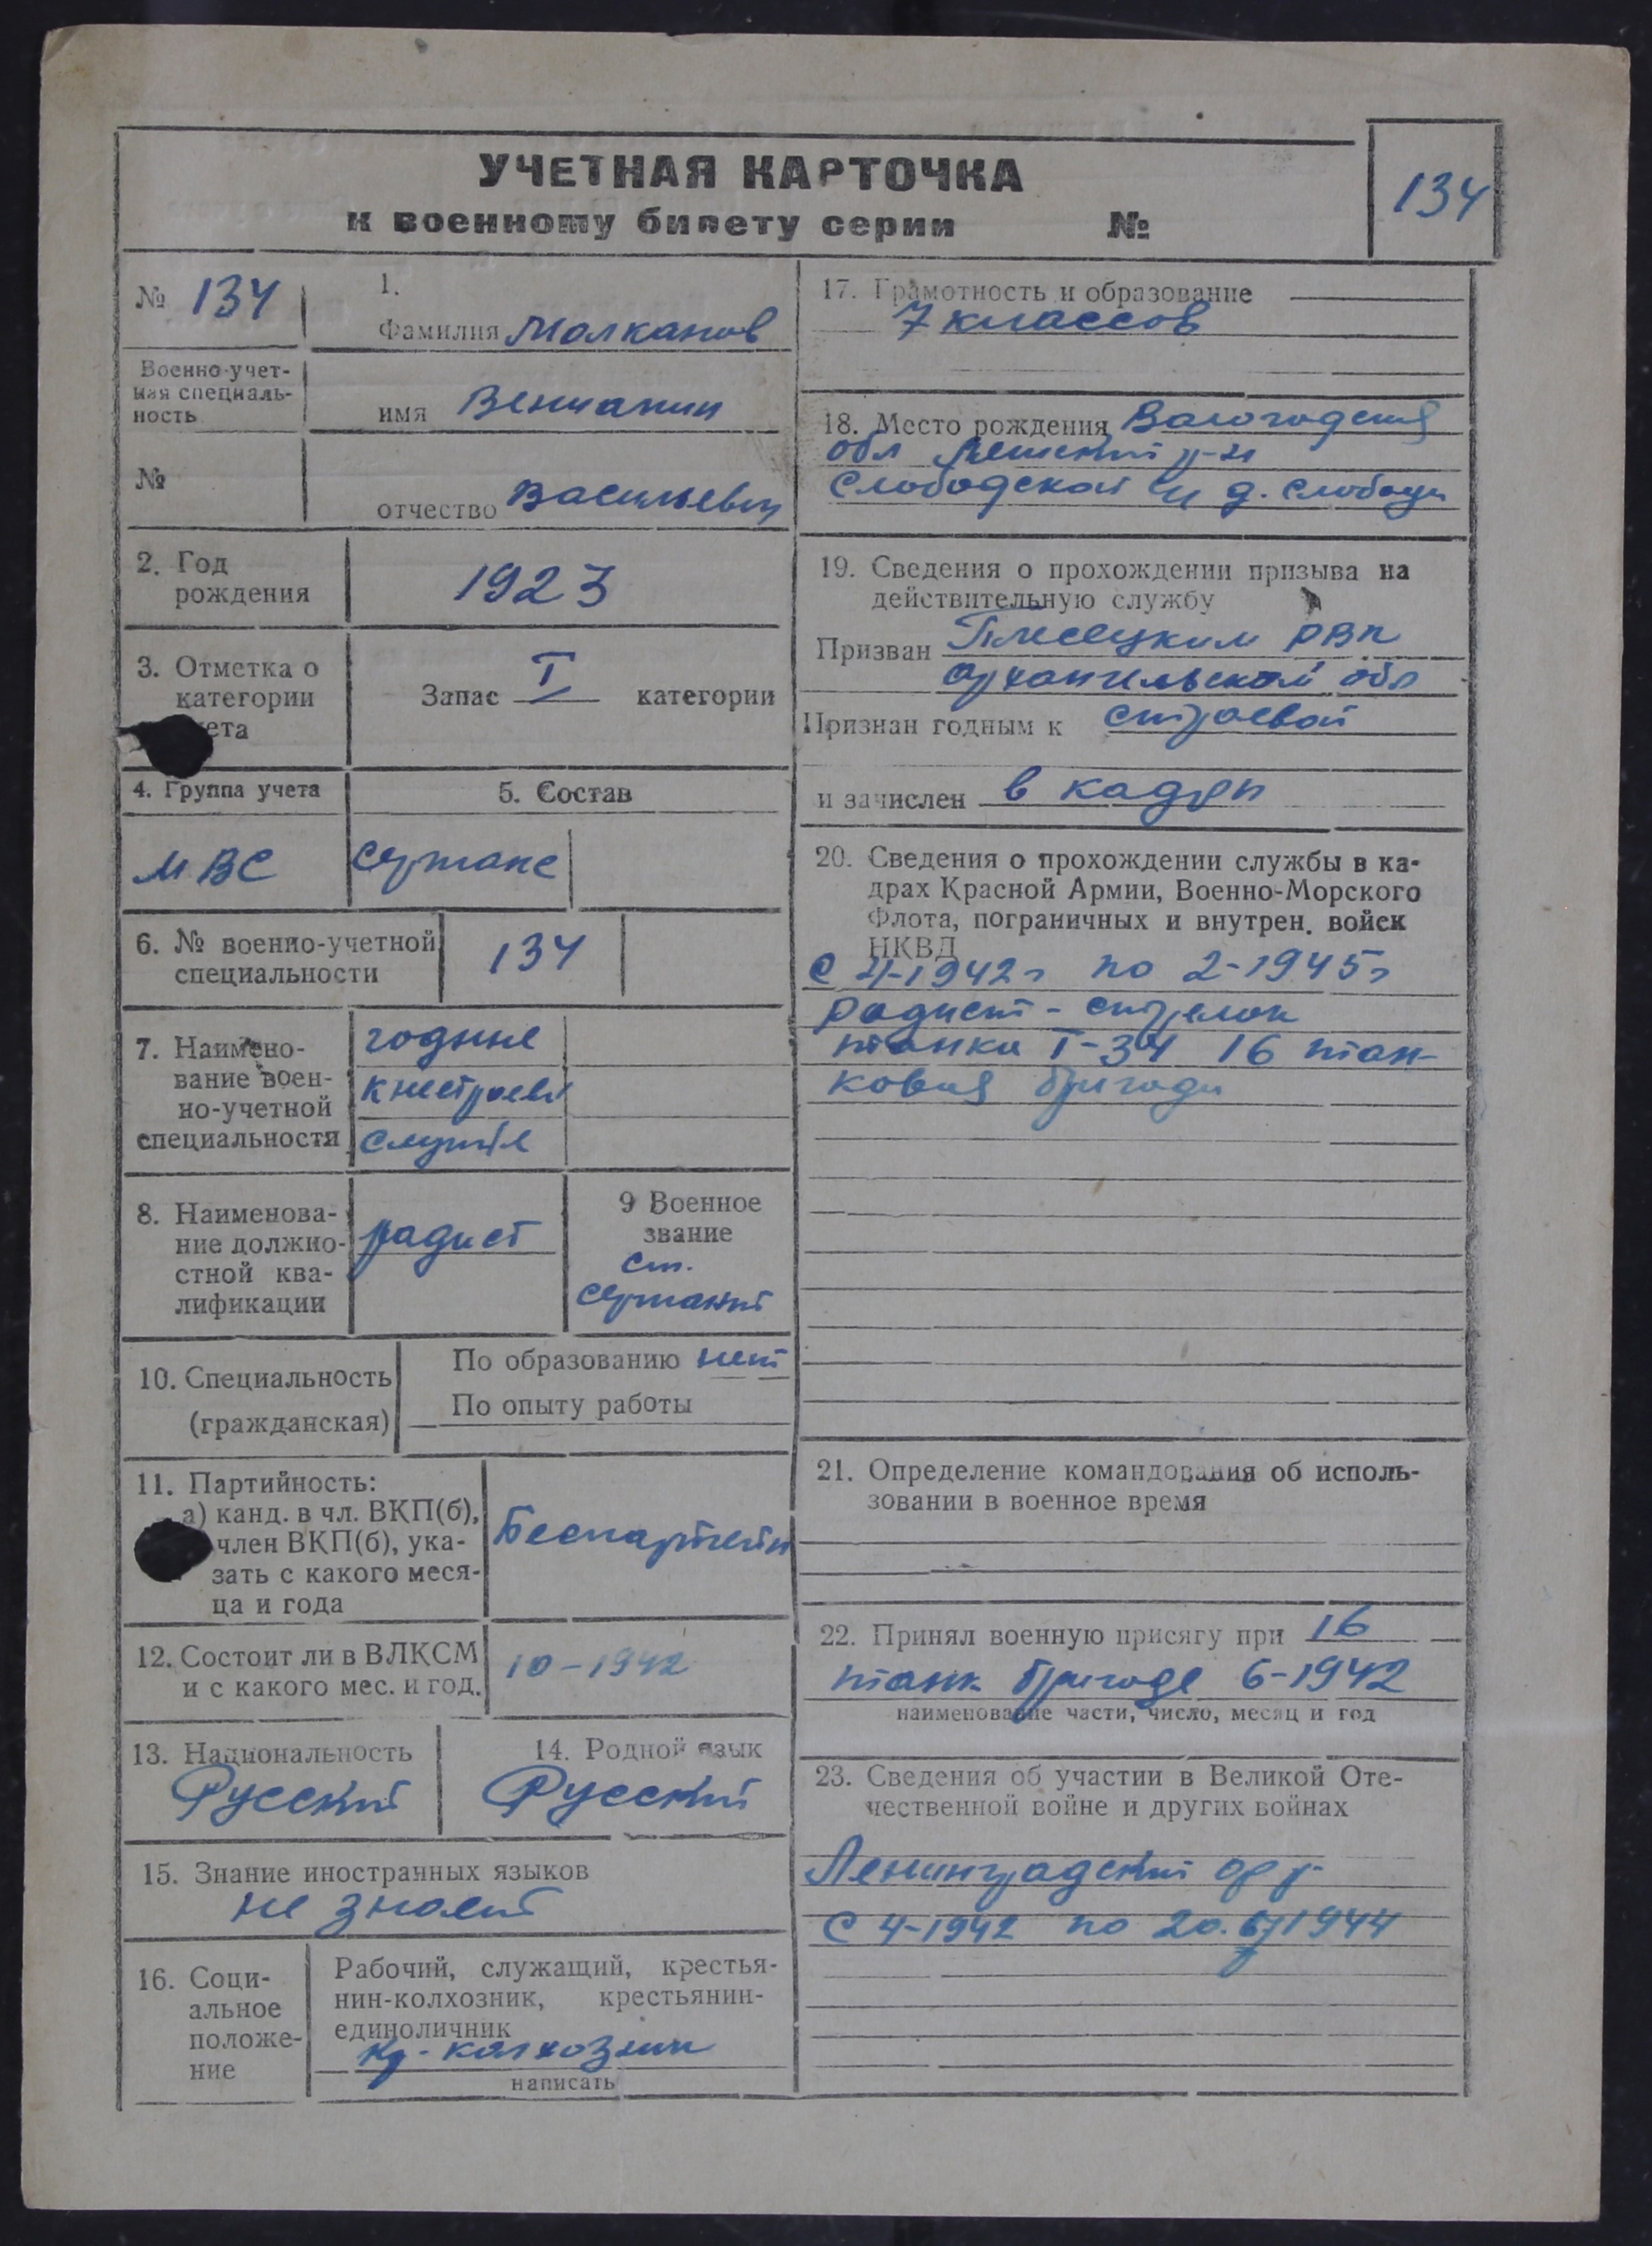 УЧЕТНАЯ КАРТОЧКА
к военному билету серии №
134
№ 134
1.
Фамилия Молканов
Военно-учет-
ная специаль-
ность
имя Вениамин
№
отчество Васильевич
2. Год
рождения
1923
3. Отметка о
категории
ета
Запас I категории
4. Группа учета
5. Состав
МВС
6. № военно-учетной
специальности
134
7. Наимено-
вание воен-
но-учетной
специальности
годные
к нестроев
службе
8. Наименова-
ние должно-
стной ква-
лификации
радист
9 Военное
звание
ст.
сержант
10. Специальность
(гражданская)
По образованию нет
По опыту работы
11. Партийность:
а) канд. в чл. ВКП(б),
член ВКП(б), ука-
зать с какого меся-
ца и года
Беспартейн
12. Состоит ли в ВЛКСМ
и с какого мес. и год.
10-1942
13. Национальность
Русский
14. Родной язык
Русский
15. Знание иностранных языков
не знает
16. Соци-
альное
положе-
ние
Рабочий, служащий, крестья-
нин-колхозник, крестьянин-
единоличник
кр-колхозник
написать
17. Грамотность и образование
7 классов
18. Место рождения Вологодская
обл р-н
Слободской д. Слобода
19. Сведения о прохождении призыва на
действительную службу
Призван Плесецким РВК
Архангельской обл
Признан годным к строевой
и зачислен в кадры
20. Сведения о прохождении службы в ка-
драх Красной Армии, Военно-Морского
Флота, пограничных и внутрен. войск
НКВД
с 4-1942г по 2-1945г
радист - стрелок
танка Т-34 16 тан-
ковая бригада
21. Определение командования об исполь-
зовании в военное время
22. Принял военную присягу при 16
танк. бригаде 6-1942
наименование части, число, месяц и год
23. Сведения об участии в Великой Оте-
чественной войне и других войнах
Ленинградский фр
с 4-1942 по 20. 1944